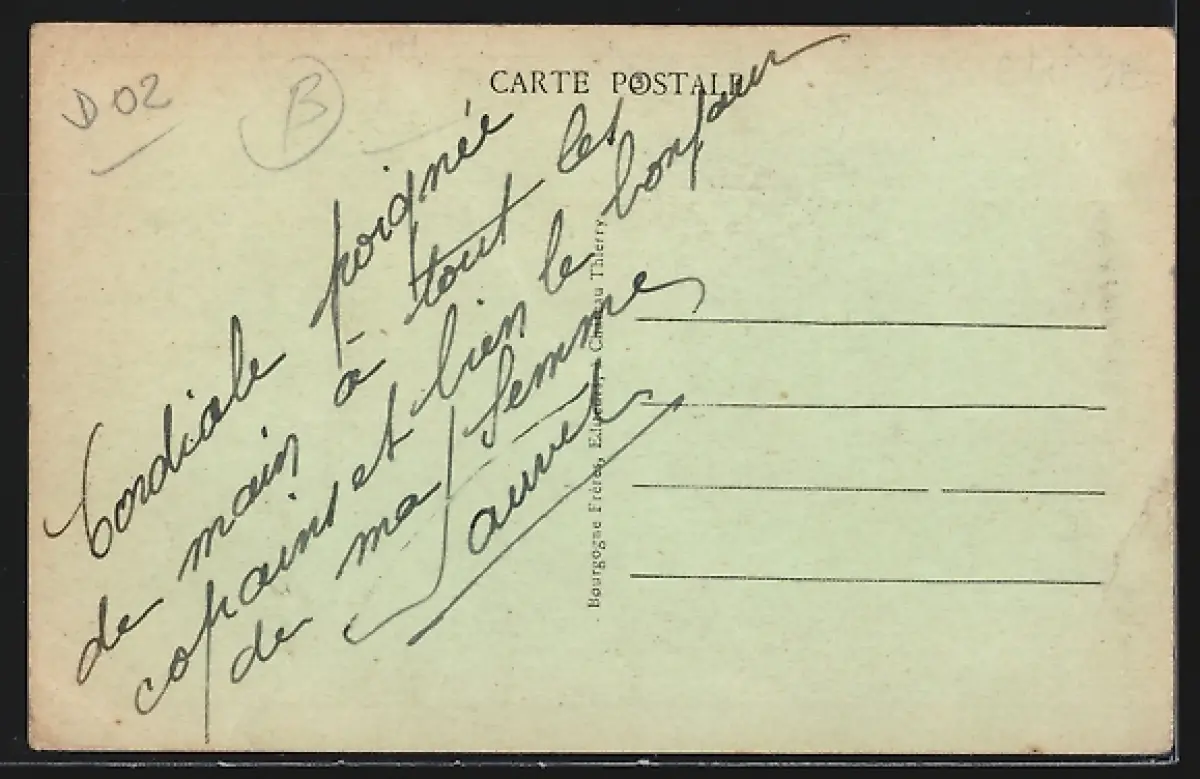 D 02
B
CARTE POSTALE
Cordiale poignée
de main à tout les
copains et bien le bonjour
de ma femme
Bourgogne Frères, Editeurs, Château Thierry